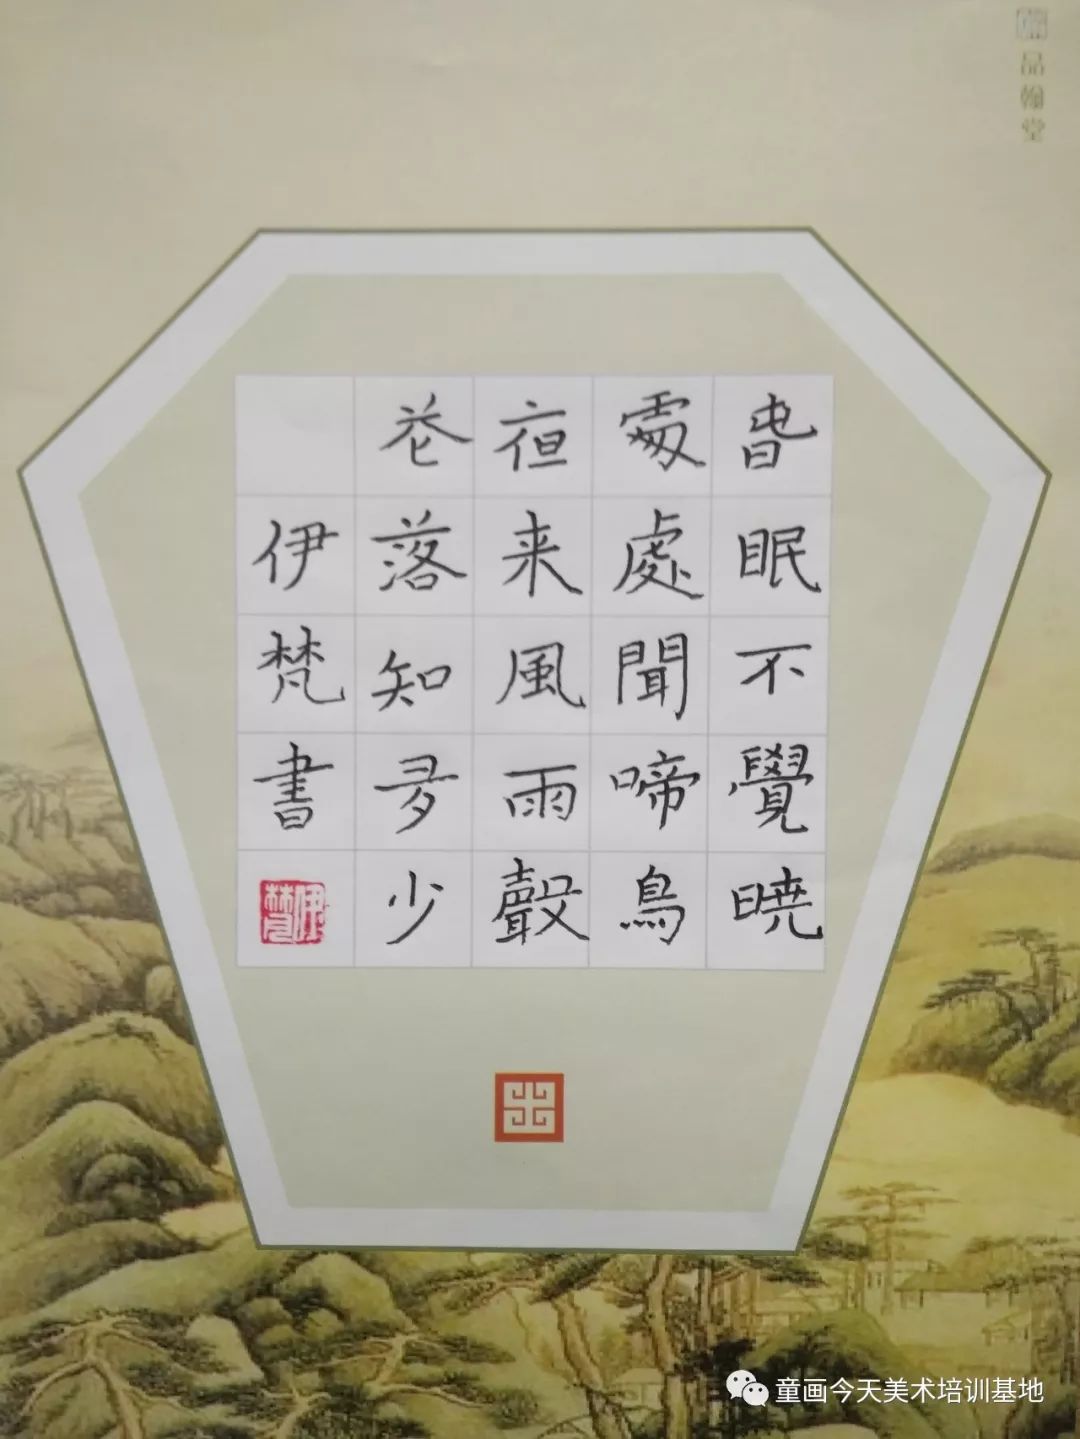 旾眠不覺曉
處處聞啼鳥
夜来風雨聲
花落知多少
伊梵書
伊梵
品翰堂
童画今天美术培训基地